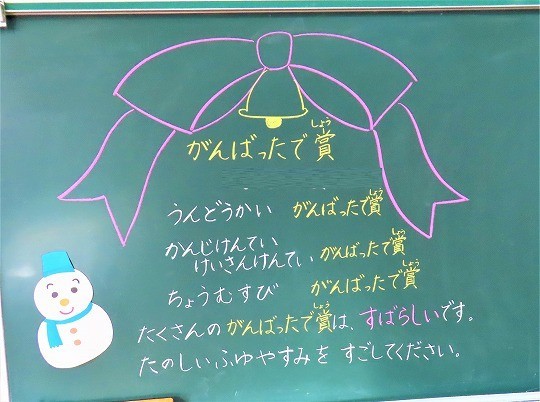 がんばったで賞
うんどうかい がんばったで賞
かんじけんてい
けいさんけんてい がんばったで賞
ちょうむすび がんばったで賞
たくさんのがんばったで賞は、すばらしいです。
たのしいふゆやすみを すごしてください。